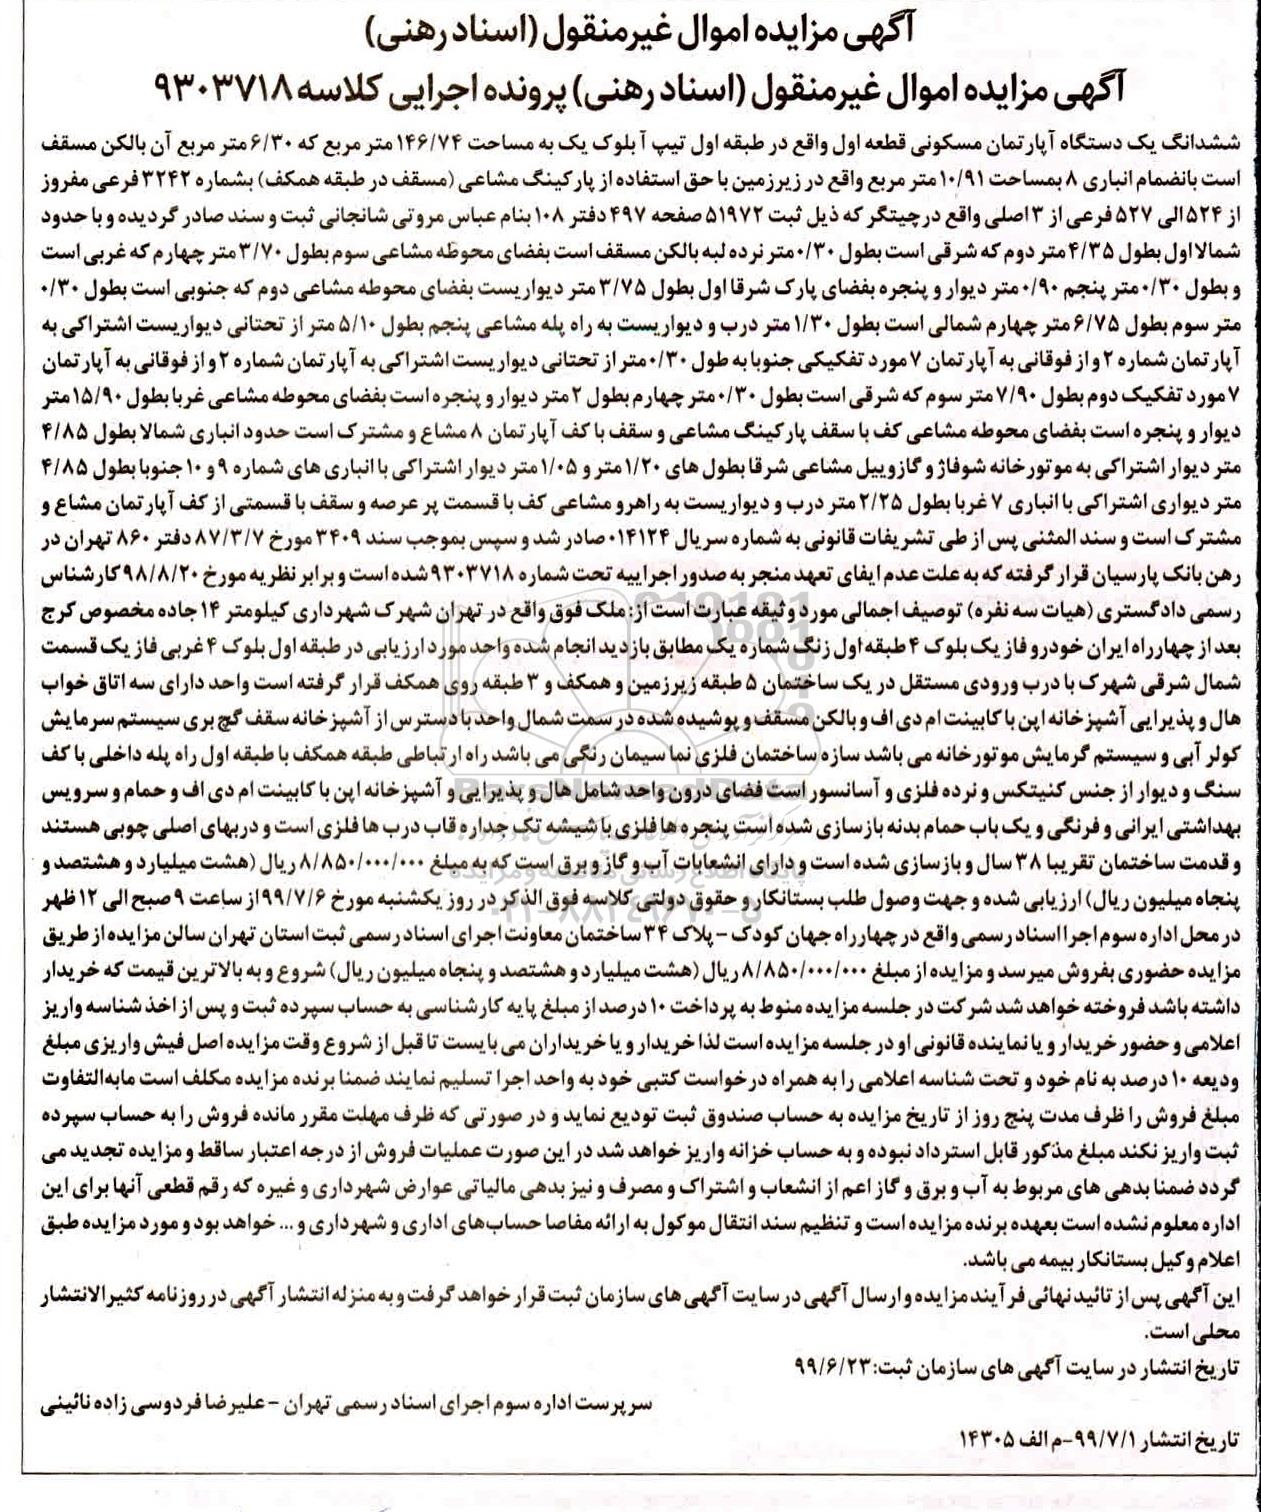 آگهی مزایده اموال غیرمنقول (اسناد رهنی)
آگهی مزایده اموال غیرمنقول (اسناد رهنی) پرونده اجرایی کلاسه ۹۳۰۳۷۱۸
ششدانگ یک دستگاه آپارتمان مسکونی قطعه اول واقع در طبقه اول تیپ آ بلوک یک به مساحت ۱۴۶/۷۴ متر مربع که ۶/۳۰ متر مربع آن بالکن مسقف
است بانضمام انباری ۸ بمساحت ۱۰/۹۱ متر مربع واقع در زیرزمین با حق استفاده از پارکینگ مشاعی (مسقف در طبقه همکف) بشماره ۳۲۴۲ فرعی مفروز
از ۵۲۴ الی ۵۲۷ فرعی از ۳ اصلی واقع در چیتگر که ذیل ثبت ۵۱۹۷۲ صفحه ۴۹۷ دفتر ۱۰۸ بنام عباس مروتی شانجانی ثبت و سند صادر گردیده و با حدود
شمالا اول بطول ۴/۳۵ متر دوم که شرقی است بطول ۰/۳۰ متر نرده لبه بالکن مسقف است بفضای محوطه مشاعی سوم بطول ۳/۷۰ متر چهارم که غربی است
و بطول ۰/۳۰ متر پنجم ۰/۹۰ متر دیوار و پنجره بفضای پارک شرقا اول بطول ۳/۷۵ متر دیواریست بفضای محوطه مشاعی دوم که جنوبی است بطول ۰/۳۰
متر سوم بطول ۶/۷۵ متر چهارم شمالی است بطول ۱/۳۰ متر درب و دیواریست به راه پله مشاعی پنجم بطول ۵/۱۰ متر از تحتانی دیواریست اشتراکی به
آپارتمان شماره ۲ و از فوقانی به آپارتمان ۷ مورد تفکیکی جنوبا به طول ۰/۳۰ متر از تحتانی دیواریست اشتراکی به آپارتمان شماره ۲ و از فوقانی به آپارتمان
۷ مورد تفکیک دوم بطول ۷/۹۰ متر سوم که شرقی است بطول ۰/۳۰ متر چهارم بطول ۲ متر دیوار و پنجره است بفضای محوطه مشاعی غربا بطول ۱۵/۹۰ متر
دیوار و پنجره است بفضای محوطه مشاعی کف با سقف پارکینگ مشاعی و سقف با کف آپارتمان ۸ مشاع و مشترک است حدود انباری شمالا بطول ۴/۸۵
متر دیوار اشتراکی به موتورخانه شوفاژ و گازوییل مشاعی شرقا بطول های ۱/۲۰ متر و ۱/۰۵ متر دیوار اشتراکی با انباری های شماره ۹ و ۱۰ جنوبا بطول ۴/۸۵
متر دیواری اشتراکی با انباری ۷ غربا بطول ۲/۲۵ متر درب و دیواریست به راهرو مشاعی کف با قسمت پر عرصه و سقف با قسمتی از کف آپارتمان مشاع و
مشترک است و سند المثنی پس از طی تشریفات قانونی به شماره سریال ۰۱۴۱۲۴ صادر شد و سپس بموجب سند ۳۴۰۹ مورخ ۸۷/۳/۷ دفتر ۸۶۰ تهران در
رهن بانک پارسیان قرار گرفته که به علت عدم ایفای تعهد منجر به صدور اجراییه تحت شماره ۹۳۰۳۷۱۸ شده است و برابر نظریه مورخ ۹۸/۸/۲۰ کارشناس
رسمی دادگستری (هیات سه نفره) توصیف اجمالی مورد وثیقه عبارت است از: ملک فوق واقع در تهران شهرک شهرداری کیلومتر ۱۴ جاده مخصوص کرج
بعد از چهارراه ایران خودرو فاز یک بلوک ۴ طبقه اول زنگ شماره یک مطابق بازدید انجام شده واحد مورد ارزیابی در طبقه اول بلوک ۴ غربی فاز یک قسمت
شمال شرقی شهرک با درب ورودی مستقل در یک ساختمان ۵ طبقه زیرزمین و همکف و ۳ طبقه روی همکف قرار گرفته است واحد دارای سه اتاق خواب
هال و پذیرایی آشپزخانه اپن با کابینت ام دی اف و بالکن مسقف و پوشیده شده در سمت شمال واحد با دسترس از آشپزخانه سقف گچ بری سیستم سرمایش
کولر آبی و سیستم گرمایش موتورخانه می باشد سازه ساختمان فلزی نما سیمان رنگی می باشد راه ارتباطی طبقه همکف با طبقه اول راه پله داخلی با کف
سنگ و دیوار از جنس کنیتکس و نرده فلزی و آسانسور است فضای درون واحد شامل هال و پذیرایی و آشپزخانه اپن با کابینت ام دی اف و حمام و سرویس
بهداشتی ایرانی و فرنگی و یک باب حمام بدنه بازسازی شده است پنجره ها فلزی با شیشه تک جداره قاب درب ها فلزی است و دربهای اصلی چوبی هستند
و قدمت ساختمان تقریبا ۳۸ سال و بازسازی شده است و دارای انشعابات آب و گاز و برق است که به مبلغ ۸/۸۵۰/۰۰۰/۰۰۰ ریال (هشت میلیارد و هشتصد و
پنجاه میلیون ریال) ارزیابی شده و جهت وصول طلب بستانکار و حقوق دولتی کلاسه فوق الذکر در روز یکشنبه مورخ ۹۹/۷/۶ از ساعت ۹ صبح الی ۱۲ ظهر
در محل اداره سوم اجرا اسناد رسمی واقع در چهارراه جهان کودک - پلاک ۳۴ ساختمان معاونت اجرای اسناد رسمی ثبت استان تهران سالن مزایده از طریق
مزایده حضوری بفروش میرسد و مزایده از مبلغ ۸/۸۵۰/۰۰۰/۰۰۰ ریال (هشت میلیارد و هشتصد و پنجاه میلیون ریال) شروع و به بالاترین قیمت که خریدار
داشته باشد فروخته خواهد شد شرکت در جلسه مزایده منوط به پرداخت ۱۰ درصد از مبلغ پایه کارشناسی به حساب سپرده ثبت و پس از اخذ شناسه واریز
اعلامی و حضور خریدار و یا نماینده قانونی او در جلسه مزایده است لذا خریدار و یا خریداران می بایست تا قبل از شروع وقت مزایده اصل فیش واریزی مبلغ
ودیعه ۱۰ درصد به نام خود و تحت شناسه اعلامی را به همراه درخواست کتبی خود به واحد اجرا تسلیم نمایند ضمنا برنده مزایده مکلف است مابه‌التفاوت
مبلغ فروش را ظرف مدت پنج روز از تاریخ مزایده به حساب صندوق ثبت تودیع نماید و در صورتی که ظرف مهلت مقرر مانده فروش را به حساب سپرده
ثبت واریز نکند مبلغ مذکور قابل استرداد نبوده و به حساب خزانه واریز خواهد شد در این صورت عملیات فروش از درجه اعتبار ساقط و مزایده تجدید می
گردد ضمنا بدهی های مربوط به آب و برق و گاز اعم از انشعاب و اشتراک و مصرف و نیز بدهی مالیاتی عوارض شهرداری و غیره که رقم قطعی آنها برای این
اداره معلوم نشده است بعهده برنده مزایده است و تنظیم سند انتقال موکول به ارائه مفاصا حساب‌های اداری و شهرداری و ... خواهد بود و مورد مزایده طبق
اعلام وکیل بستانکار بیمه می باشد.
این آگهی پس از تائید نهائی فرآیند مزایده و ارسال آگهی در سایت آگهی های سازمان ثبت قرار خواهد گرفت و به منزله انتشار آگهی در روزنامه کثیرالانتشار
محلی است.
تاریخ انتشار در سایت آگهی های سازمان ثبت: ۹۹/۶/۲۳
سرپرست اداره سوم اجرای اسناد رسمی تهران - علیرضا فردوسی زاده نائینی
تاریخ انتشار ۹۹/۷/۱-م الف ۱۴۳۰۵
ParsNamadData
پایگاه اطلاع رسانی مناقصه و مزایده
۰۲۱-۸۸۳۴۹۶۷۰-۵